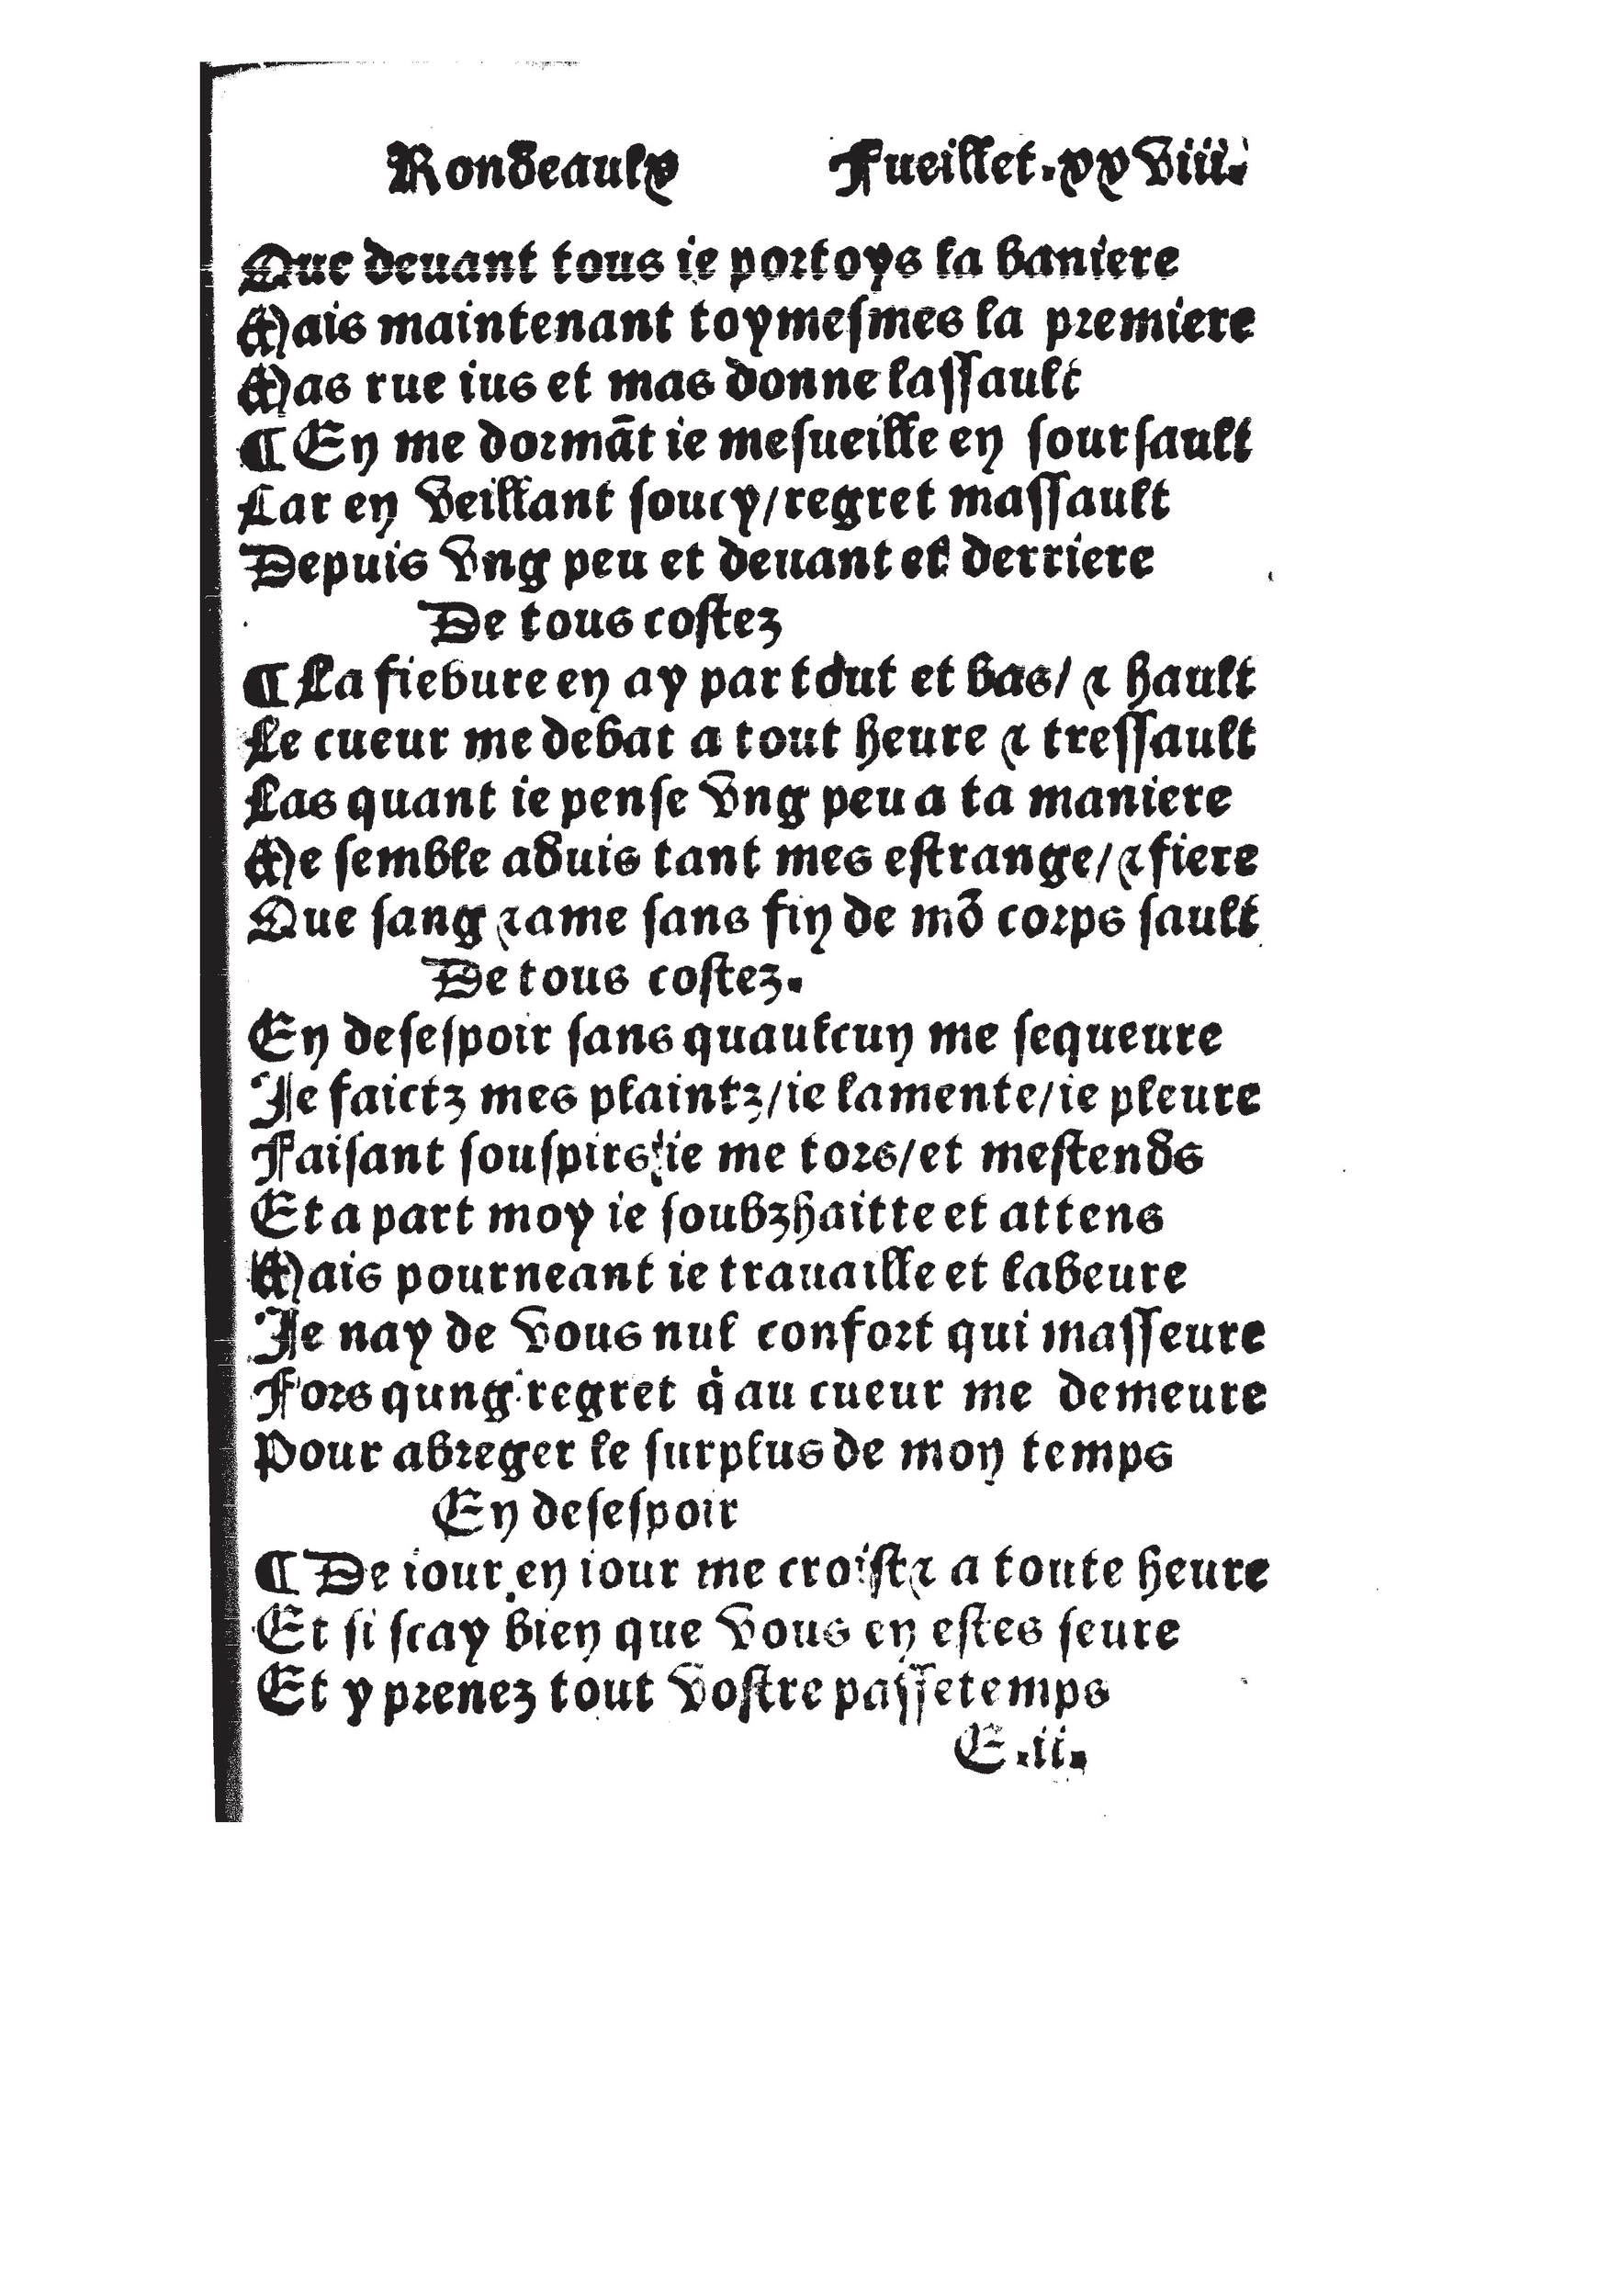 Rondeaulx Fueillet.xxviii.
Que deuant tous ie portoys la baniere
Mais maintenant toymesmes la premiere
Mas rue ius et mas donne lassault
¶ En me dormāt ie mesueille en soursault
Car en veillant soucy/regret massault
Depuis vng peu et deuant et derriere
De tous costez
¶ La fiebure en ay par tout et bas/ ⁊ hault
Le cueur me debat a tout heure ⁊ tressault
Las quant ie pense vng peu a ta maniere
Me semble aduis tant mes estrange/⁊ fiere
Que sang ⁊ ame sans fin de mō corps sault
De tous costez.
En desespoir sans quaulcun me sequeure
Je faictz mes plaintz/ie lamente/ie pleure
Faisant souspirs/ie me tors/et mestends
Et a part moy ie soubzhaitte et attens
Mais pourneant ie trauaille et labeure
Je nay de vous nul confort qui masseure
Fors qung regret q̇ au cueur me demeure
Pour abreger le surplus de mon temps
En desespoir
¶ De iour en iour me croist ⁊ a toute heure
Et si scay bien que vous en estes seure
Et y prenez tout vostre passetemps
E.ii.